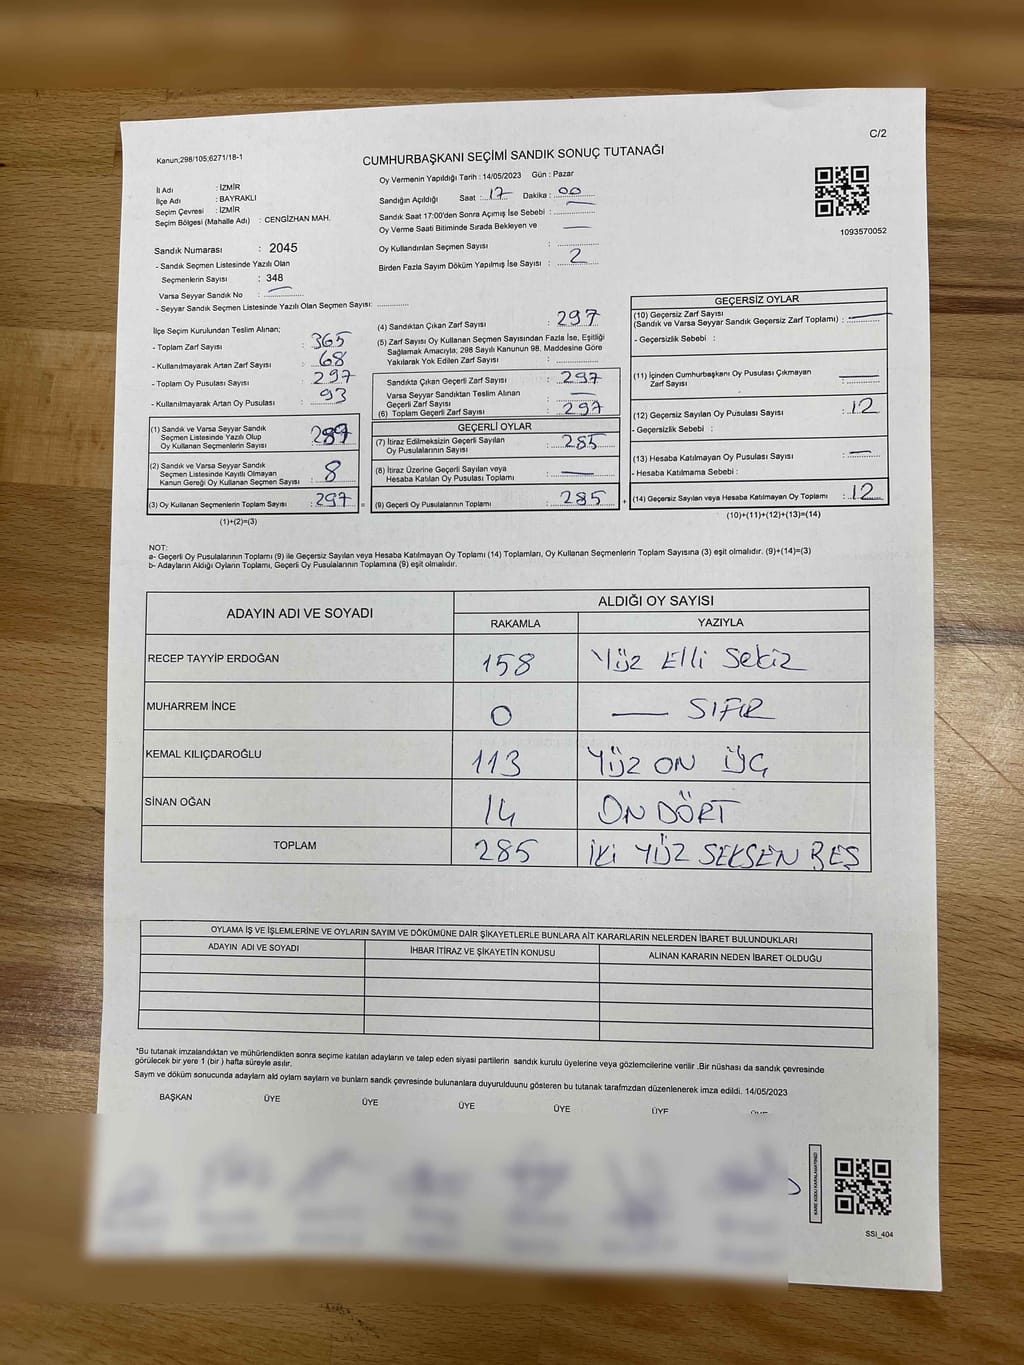 C/2
Kanun;298/105;6271/18-1
CUMHURBAŞKANI SEÇİMİ SANDIK SONUÇ TUTANAĞI
İl Adı : İZMİR
İlçe Adı : BAYRAKLI
Seçim Çevresi : İZMİR
Seçim Bölgesi (Mahalle Adı) : CENGİZHAN MAH.
Sandık Numarası : 2045
- Sandık Seçmen Listesinde Yazılı Olan
Seçmenlerin Sayısı : 348
Varsa Seyyar Sandık No : —
- Seyyar Sandık Seçmen Listesinde Yazılı Olan Seçmen Sayısı: ............
Oy Vermenin Yapıldığı Tarih : 14/05/2023 Gün : Pazar
Sandığın Açıldığı Saat : 17 Dakika : 00
Sandık Saat 17:00'den Sonra Açımış İse Sebebi : —
Oy Verme Saati Bitiminde Sırada Bekleyen ve —
Oy Kullandırılan Seçmen Sayısı :
Birden Fazla Sayım Döküm Yapılmış İse Sayısı : 2
1093570052
İlçe Seçim Kurulundan Teslim Alınan;
- Toplam Zarf Sayısı : 365
- Kullanılmayarak Artan Zarf Sayısı : 68
- Toplam Oy Pusulası Sayısı : 297
- Kullanılmayarak Artan Oy Pusulası : 93
(1) Sandık ve Varsa Seyyar Sandık
Seçmen Listesinde Yazılı Olup
Oy Kullanan Seçmenlerin Sayısı : 289
(2) Sandık ve Varsa Seyyar Sandık
Seçmen Listesinde Kayıtlı Olmayan
Kanun Gereği Oy Kullanan Seçmen Sayısı : 8
(3) Oy Kullanan Seçmenlerin Toplam Sayısı : 297
(1)+(2)=(3)
(4) Sandıktan Çıkan Zarf Sayısı : 297
(5) Zarf Sayısı Oy Kullanan Seçmen Sayısından Fazla İse, Eşitliği
Sağlamak Amacıyla; 298 Sayılı Kanunun 98. Maddesine Göre
Yakılarak Yok Edilen Zarf Sayısı :
Sandıkta Çıkan Geçerli Zarf Sayısı : 297
Varsa Seyyar Sandıktan Teslim Alınan
Geçerli Zarf Sayısı : —
(6) Toplam Geçerli Zarf Sayısı : 297
GEÇERLİ OYLAR
(7) İtiraz Edilmeksizin Geçerli Sayılan
Oy Pusulalarının Sayısı : 285
(8) İtiraz Üzerine Geçerli Sayılan veya
Hesaba Katılan Oy Pusulası Toplamı : —
= (9) Geçerli Oy Pusulalarının Toplamı : 285 +
GEÇERSİZ OYLAR
(10) Geçersiz Zarf Sayısı
(Sandık ve Varsa Seyyar Sandık Geçersiz Zarf Toplamı) : —
- Geçersizlik Sebebi :
(11) İçinden Cumhurbaşkanı Oy Pusulası Çıkmayan
Zarf Sayısı : —
(12) Geçersiz Sayılan Oy Pusulası Sayısı : 12
- Geçersizlik Sebebi :
(13) Hesaba Katılmayan Oy Pusulası Sayısı : —
- Hesaba Katılmama Sebebi :
(14) Geçersiz Sayılan veya Hesaba Katılmayan Oy Toplamı : 12
(10)+(11)+(12)+(13)=(14)
NOT:
a- Geçerli Oy Pusulalarının Toplamı (9) ile Geçersiz Sayılan veya Hesaba Katılmayan Oy Toplamı (14) Toplamları, Oy Kullanan Seçmenlerin Toplam Sayısına (3) eşit olmalıdır. (9)+(14)=(3)
b- Adayların Aldığı Oyların Toplamı, Geçerli Oy Pusulalarının Toplamına (9) eşit olmalıdır.
ADAYIN ADI VE SOYADI ALDIĞI OY SAYISI
RAKAMLA YAZIYLA
RECEP TAYYİP ERDOĞAN 158 Yüz Elli Sekiz
MUHARREM İNCE 0 — SIFIR
KEMAL KILIÇDAROĞLU 113 YÜZ ON ÜÇ
SİNAN OĞAN 14 ON DÖRT
TOPLAM 285 İKİ YÜZ SEKSEN BEŞ
OYLAMA İŞ VE İŞLEMLERİNE VE OYLARIN SAYIM VE DÖKÜMÜNE DAİR ŞİKAYETLERLE BUNLARA AİT KARARLARIN NELERDEN İBARET BULUNDUKLARI
ADAYIN ADI VE SOYADI İHBAR İTİRAZ VE ŞİKAYETİN KONUSU ALINAN KARARIN NEDEN İBARET OLDUĞU
*Bu tutanak imzalandıktan ve mühürlendikten sonra seçime katılan adayların ve talep eden siyasi partilerin sandık kurulu üyelerine veya gözlemcilerine verilir .Bir nüshası da sandık çevresinde
görülecek bir yere 1 (bir ) hafta süreyle asılır.
Sayım ve döküm sonucunda adayların ald oyların sayların ve bunların sandk çevresinde bulunanlara duyurulduunu gösteren bu tutanak tarafmzdan düzenlenerek imza edildi. 14/05/2023
BAŞKAN ÜYE ÜYE ÜYE ÜYE ÜYE ÜYE
KARE KODU KARALAMAYINIZ!
SSI_404